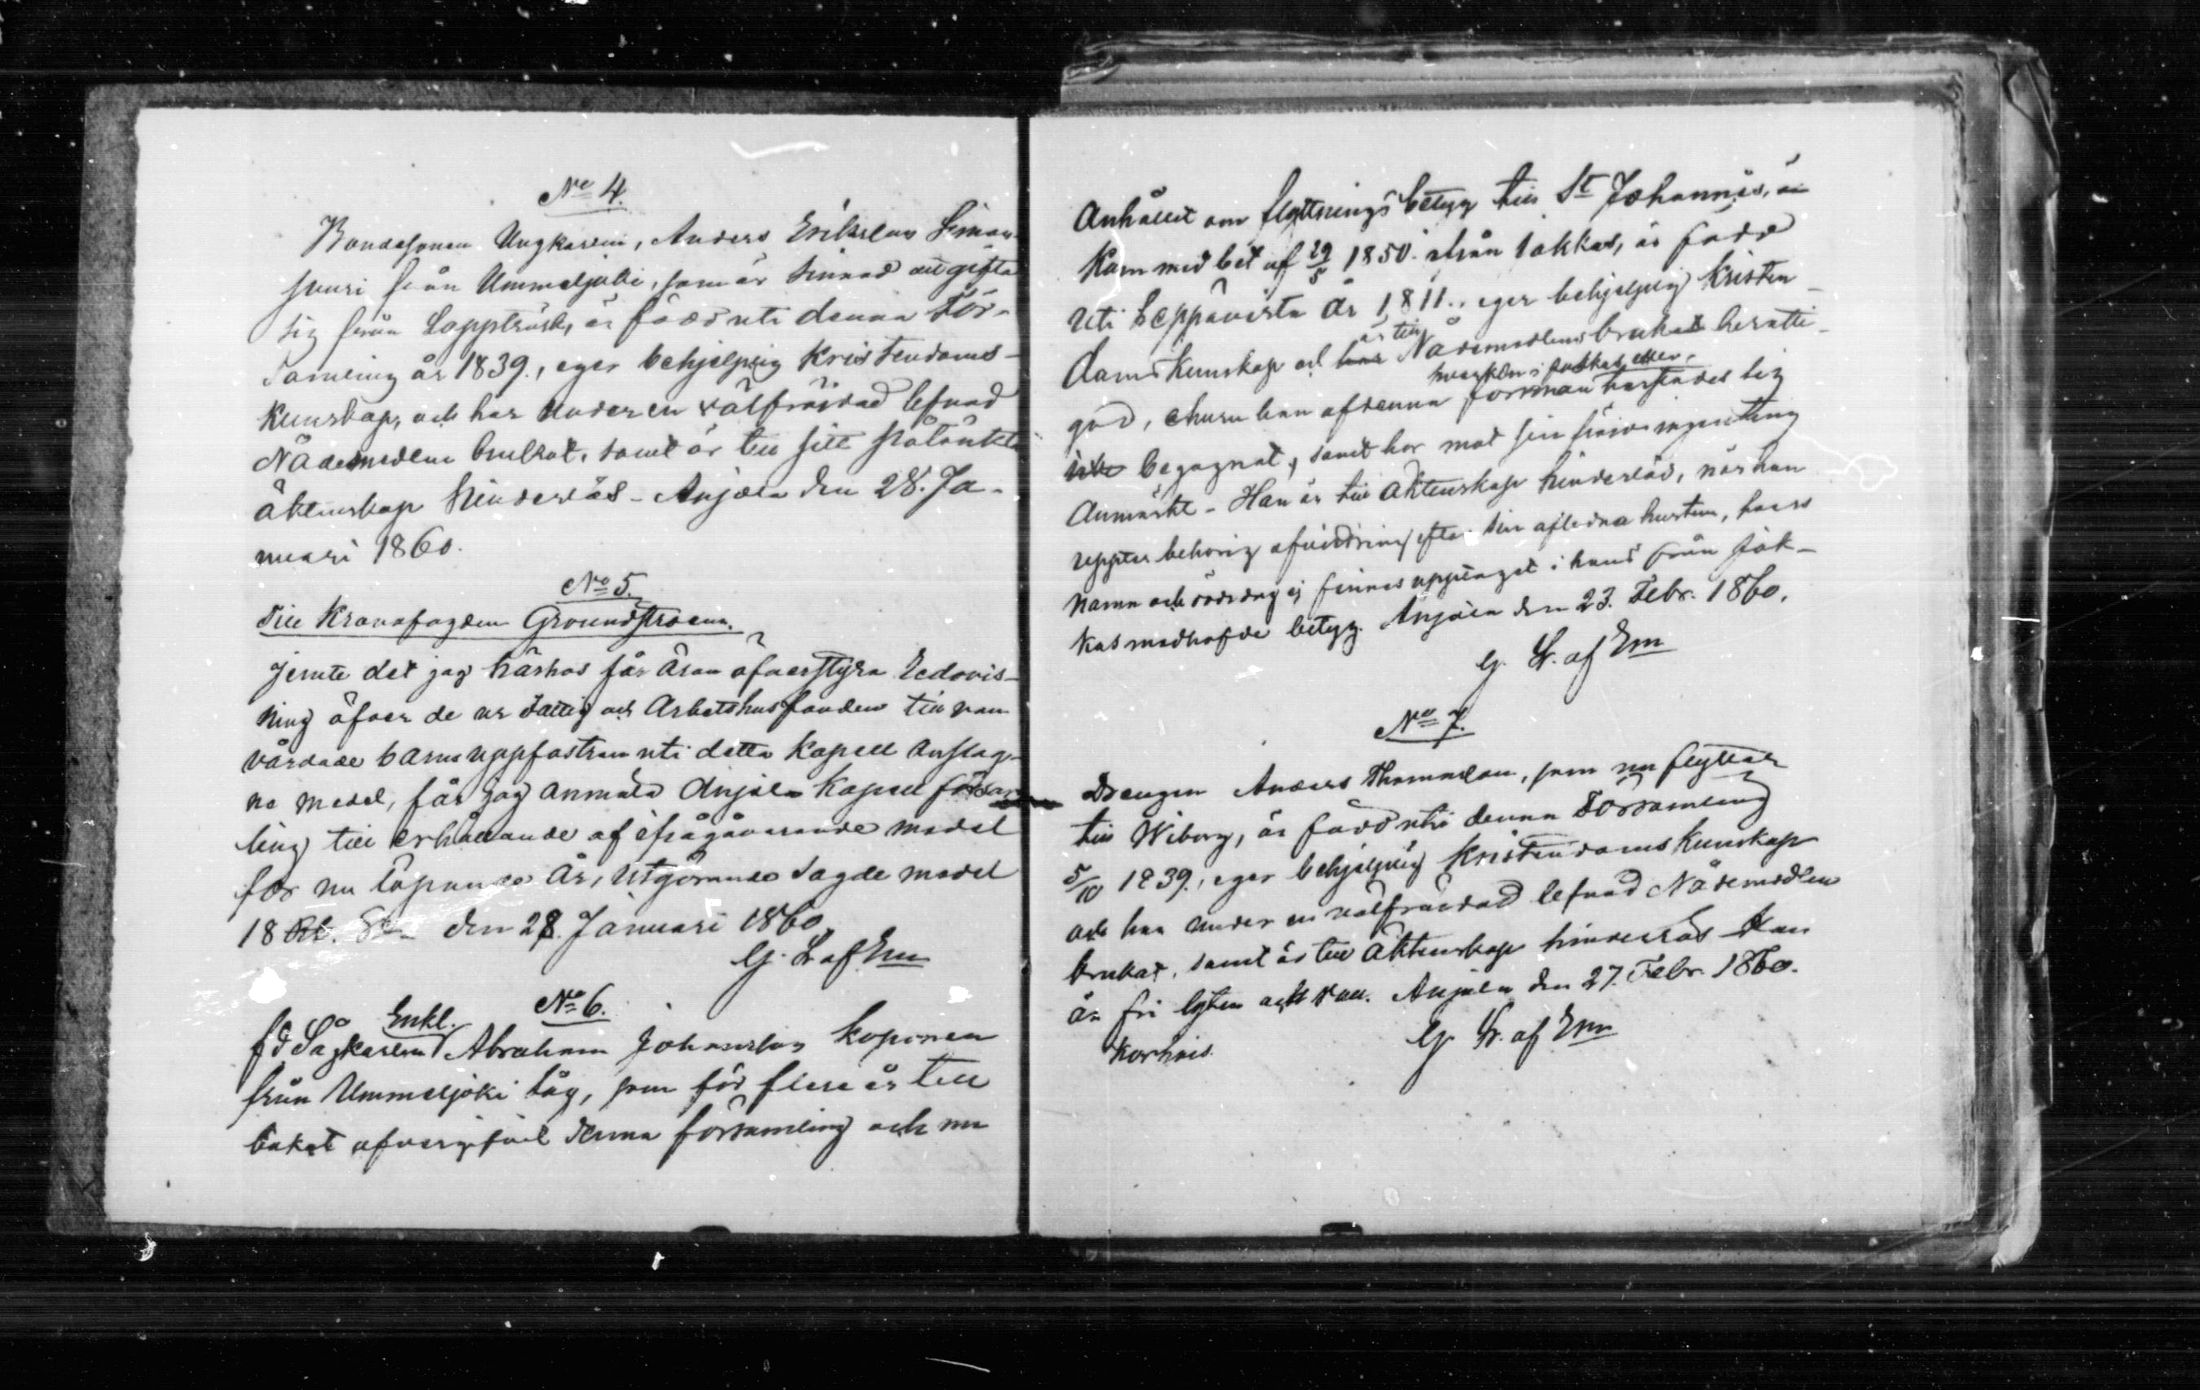 No 4.
Bondesonen Ungkarlen, Anders Eriksson Siman-
puri från Ummeljoki, som är sinnad att gifta
sig från Lappträsk, är född uti denna För-
samling år 1839, eger behjelplig Kristendoms-
kunskap, och har under en välfräjdad lefnad
Nådemedlen brukat, samt är till sitt påtänkta
äktenskap hinderslös - Anjala den 28. Ja-
nuari 1860.
No 5.
Till Kronofogden Groundstroem.
Jemte det jag härhos får äran öfverstyra Redovis-
ning öfver de ur Fattig och Arbetshusfonden till van
vårdade barns uppfostran uti detta Kapell anslag-
na medel, får jag anmäla Anjala Kapell försam
ling till erhållande af ifrågavarande medel
för nu löpande år, utgörande sagde medel
18 den 28. Januari 1860.
G. L. af Em
No 6.
Enkl.
fd Sågkarlen Abraham Johansson Koponen
från Ummeljoki såg, som för flere år till
bakat öfvergifvit denna församling och nu
Anhållit om flyttningsbetyg till St Johannes, än
kom med bet af 29/5 1850 ifrån Jokkas, är född
uti Leppävirta år 1811, eger behjelplig Kristen
är till
domskunskap och har Nådemedlens brukat beratti-
hvarken i Jokkas eller
gad, ehuru han af denna förmån härstädes sig
icke begagnat, samt har mot sin fräjd ingenting
Anmärkt - Han är till äktenskap hinderslös, när han
uppter behörig afvittring efter sin aflidna hustru, hvars
namn och dödsdag ej finnes upptaget i hans från Jok-
kas medhafde betyg. Anjala den 23. Febr. 1860.
G. L. af Em
No 7.
Drengen Anders Thomasson, som nu flyttar
till Wiborg, är född uti denna Församling
5/10 1839, eger behjelplig Kristendoms kunskap
och har under en välfräjdad lefnad Nådemedlen
brukat, samt är till äktenskap hinderslös Han
är fri lyten och van. Anjala den 27. Febr. 1860.
G. L. af Em